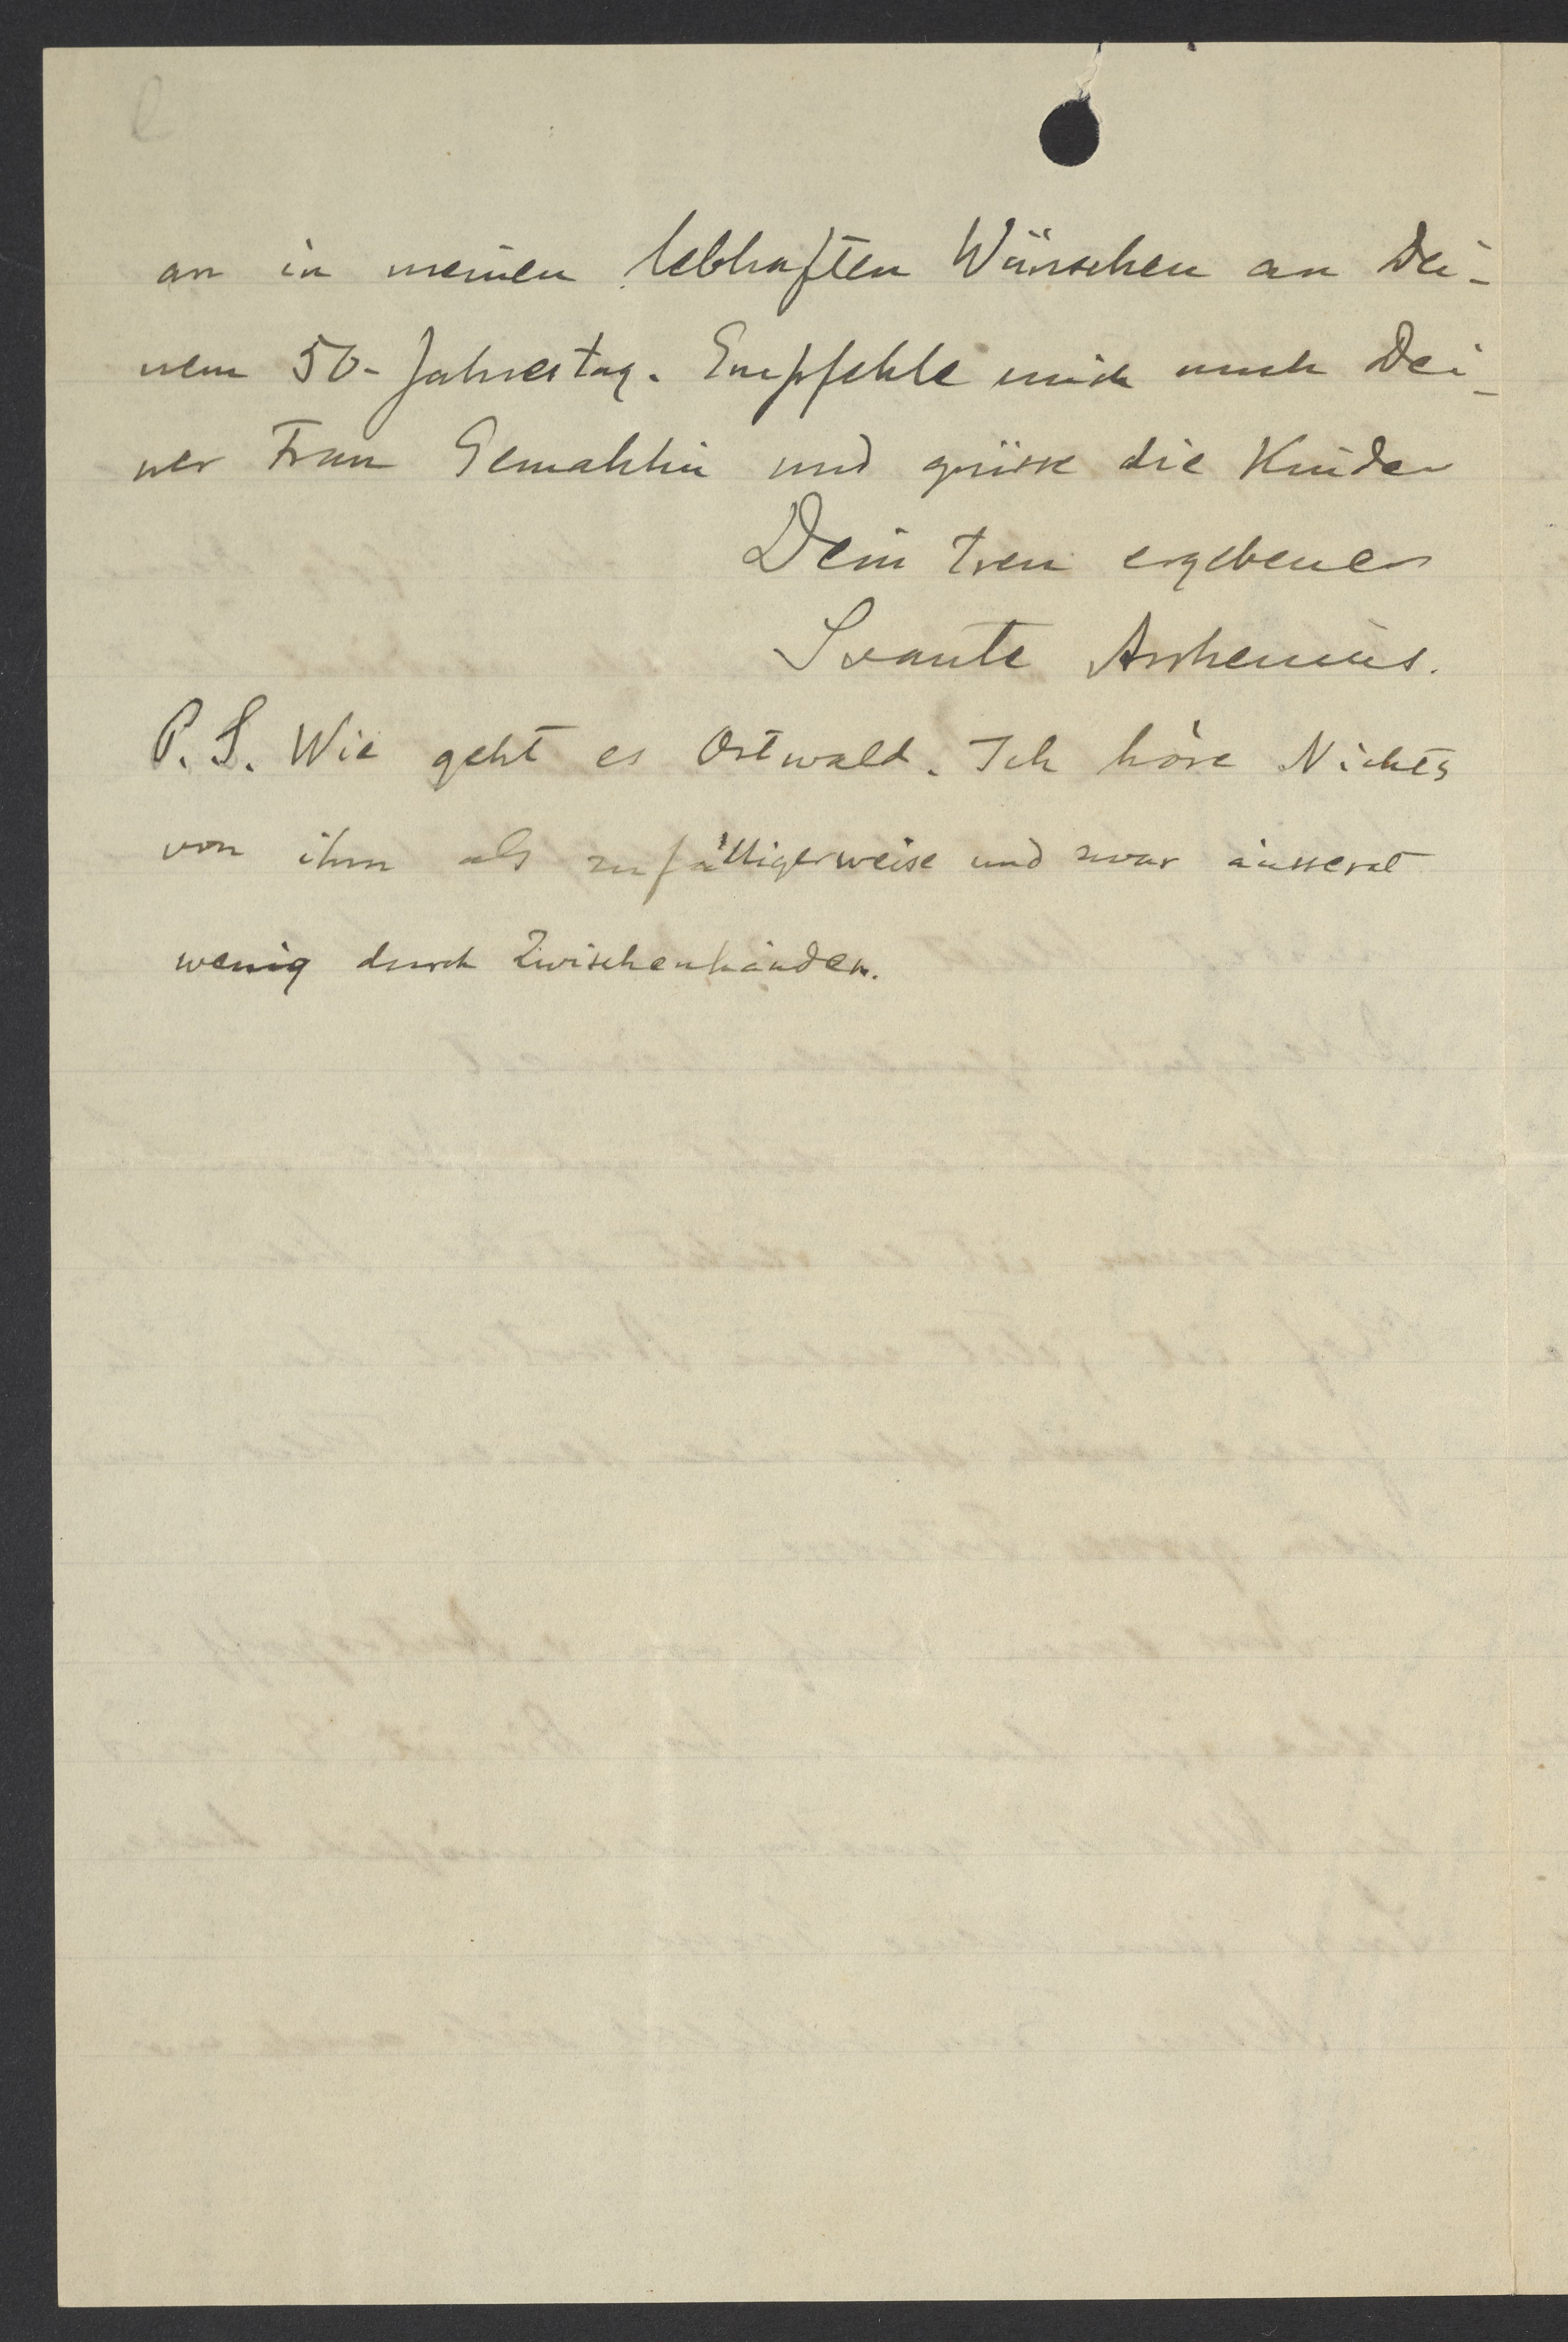 an in meinen lebhaften Wünschen an Dei-
nem 50-Jahrestag. Empfehle mich auch Dei-
ner Frau Gemahlin und grüsse die Kinder
Dein treu ergebener
Svante Arrhenius.
P.S. Wie geht es Ostwald. Ich höre Nichts
von ihm als zufälligerweise und zwar äusserst
wenig durch Zwischenhänden.